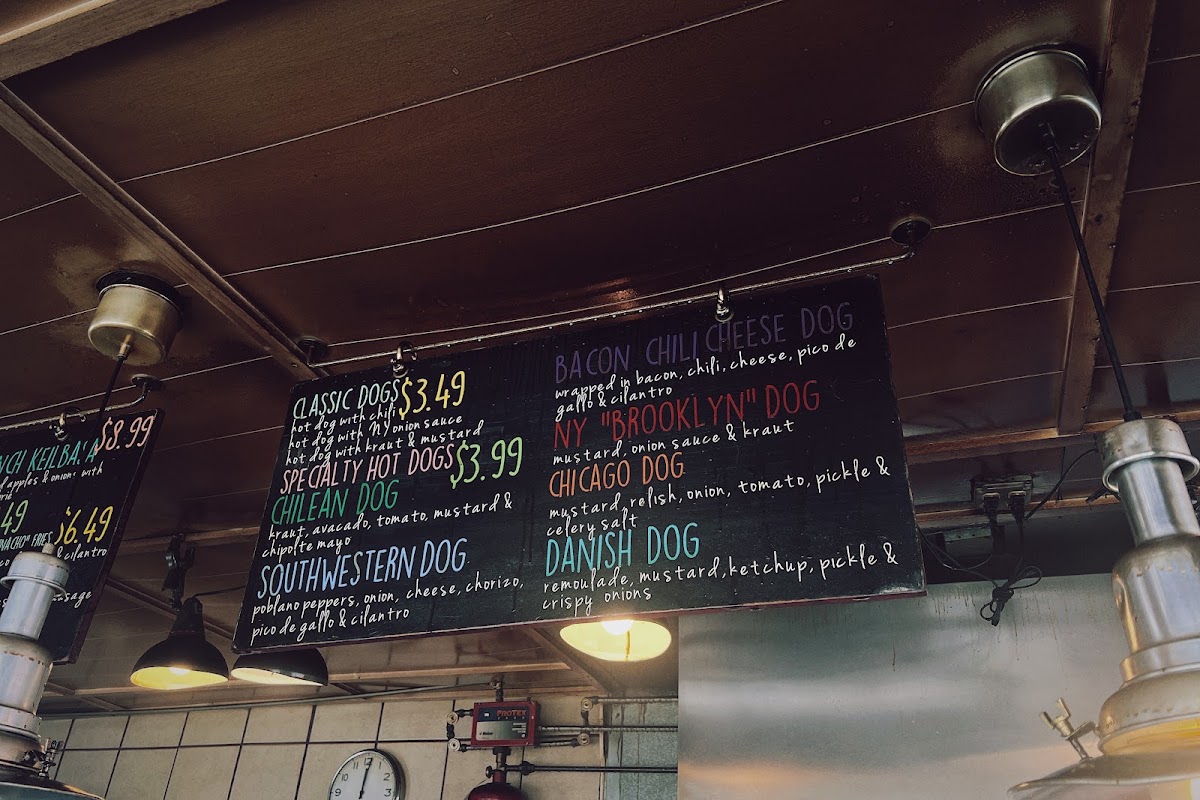 $8.99
NCH KEILBASA
d apples & onions with
.49
$6.49
NACHO" FRIES
& cilantro
sausage
CLASSIC DOGS $3.49
hot dog with chili
hot dog with NY onion sauce
hot dog with kraut & mustard
SPECIALTY HOT DOGS $3.99
CHILEAN DOG
kraut, avacado, tomato, mustard &
chipolte mayo
SOUTHWESTERN DOG
poblano peppers, onion, cheese, chorizo,
pico de gallo & cilantro
BACON CHILI CHEESE DOG
wrapped in bacon, chili, cheese, pico de
gallo & cilantro
NY "BROOKLYN" DOG
mustard, onion sauce & kraut
CHICAGO DOG
mustard, relish, onion, tomato, pickle &
celery salt
DANISH DOG
remoulade, mustard, ketchup, pickle &
crispy onions
PROTEX